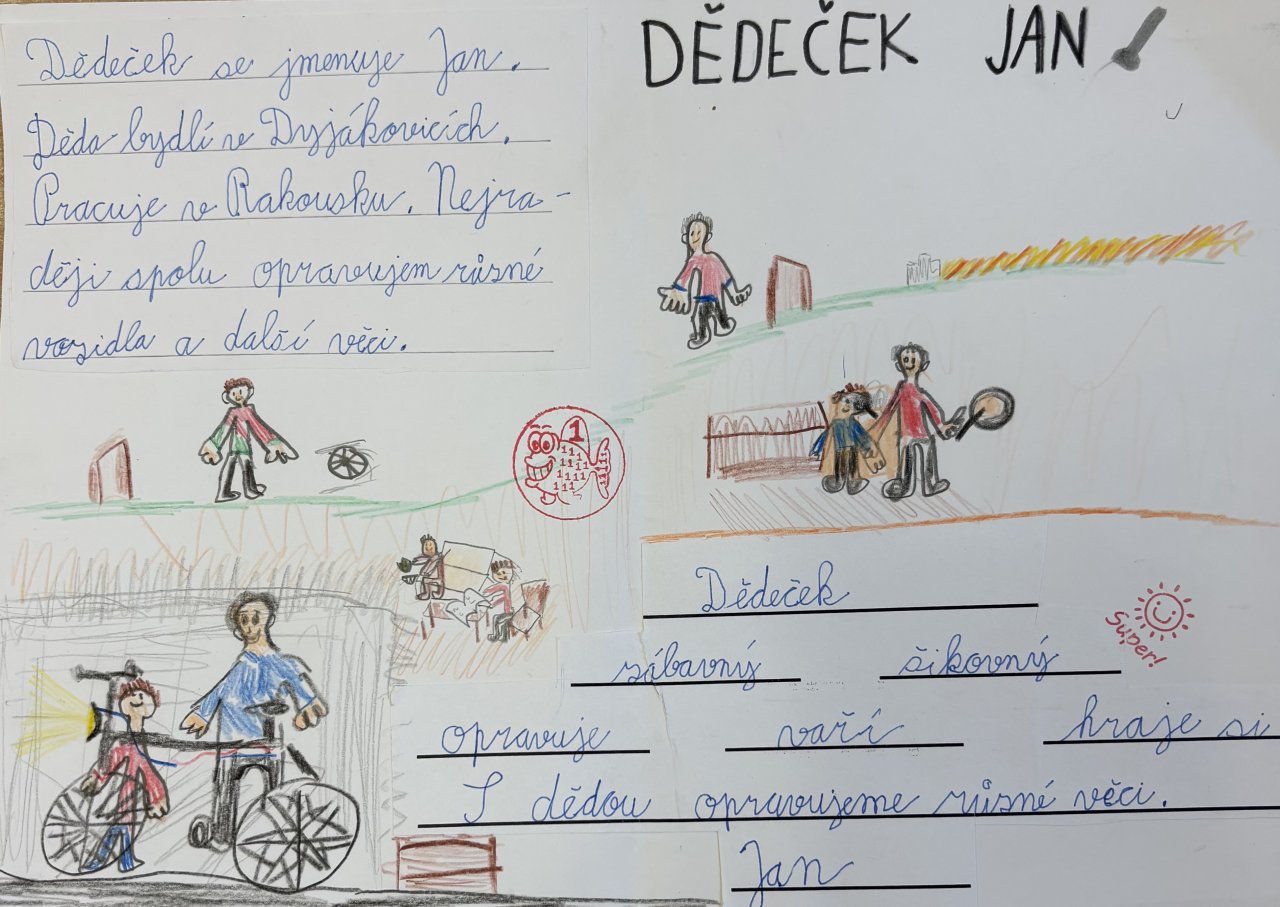 Dědeček se jmenuje Jan.
Děda bydlí v Dyjákovicích.
Pracuje v Rakousku. Nejra-
ději spolu opravujem různé
vozidla a další věci.
DĚDEČEK JAN
1
111
1111
1111
111
1111
Dědeček
Super!
zábavný šikovný
opravuje vaří hraje si
S dědou opravujeme různé věci.
Jan